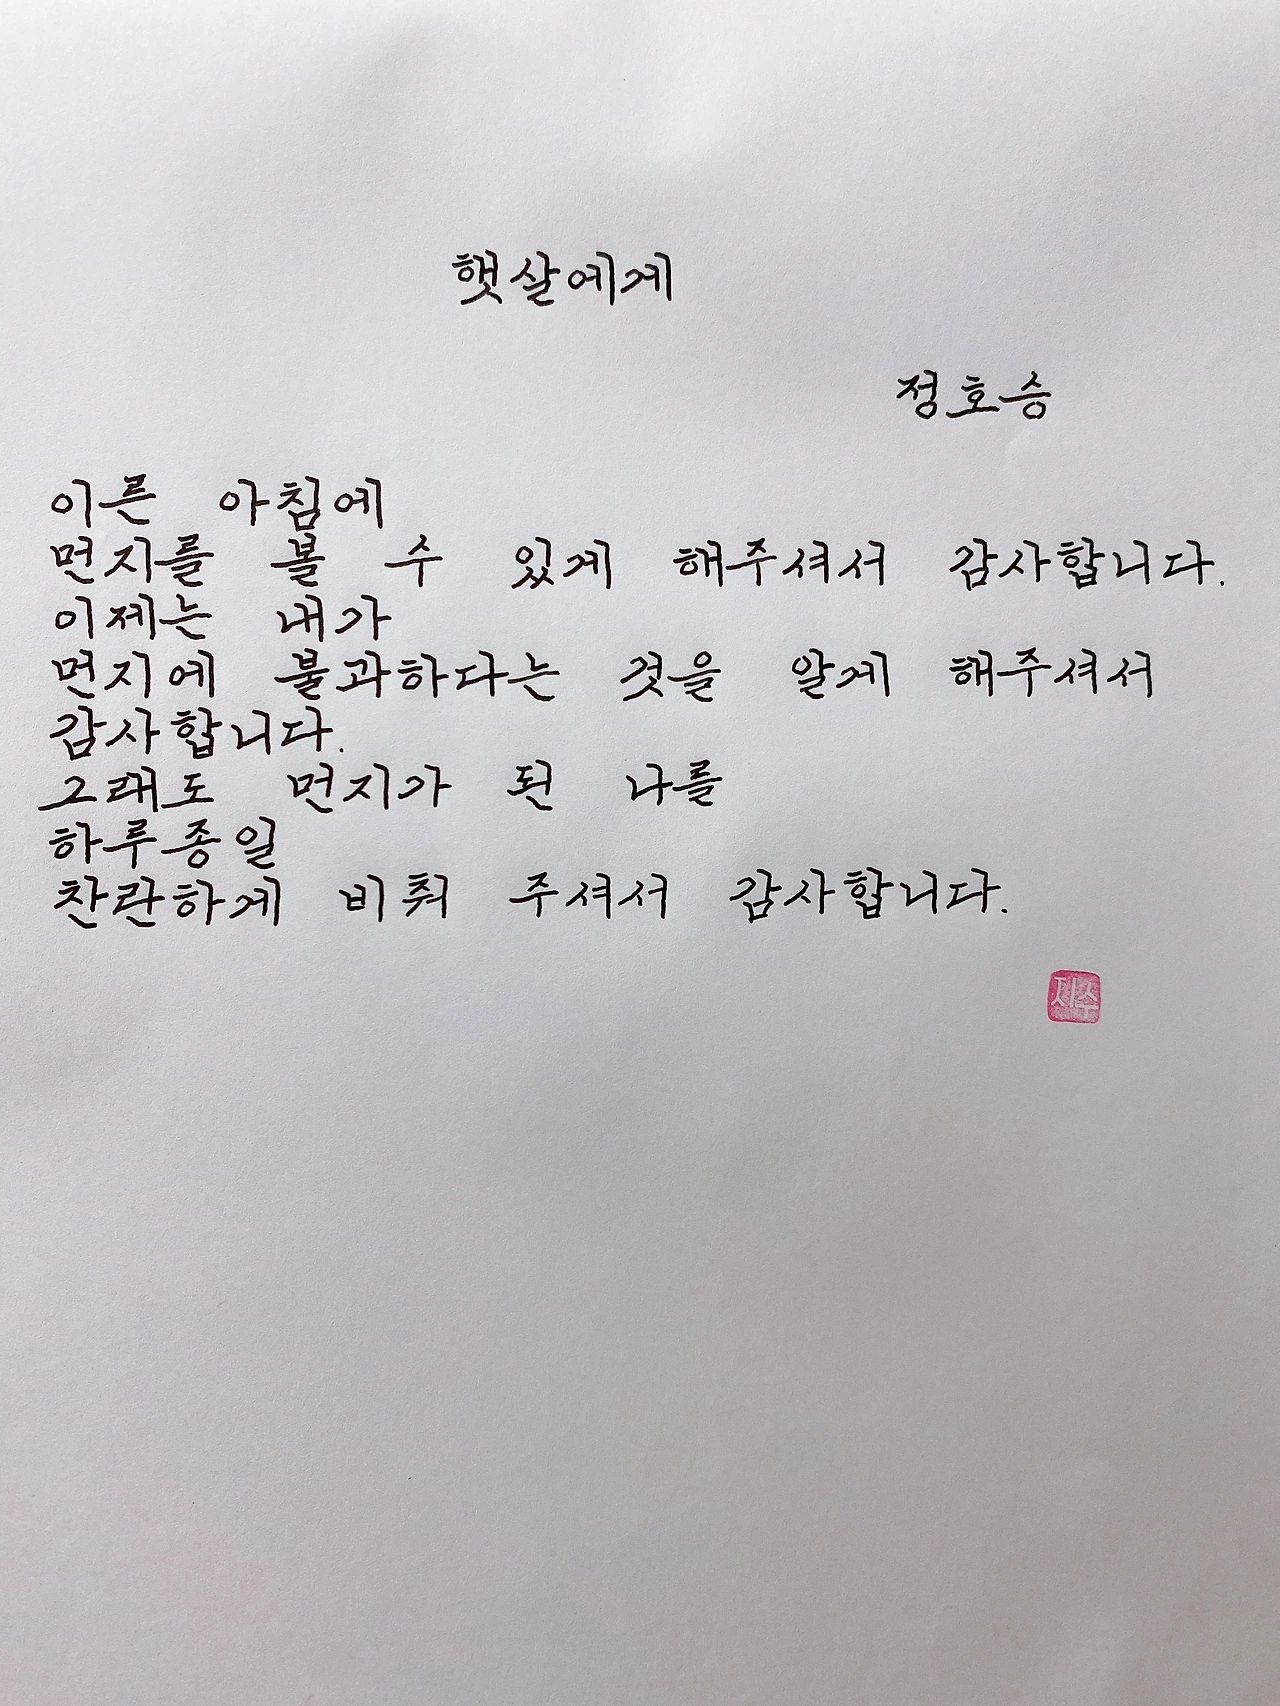 햇살에게
정호승
이른 아침에
먼지를 볼 수 있게 해주셔서 감사합니다.
이제는 내가
먼지에 불과하다는 것을 알게 해주셔서
감사합니다.
그래도 먼지가 된 나를
하루종일
찬란하게 비춰 주셔서 감사합니다.